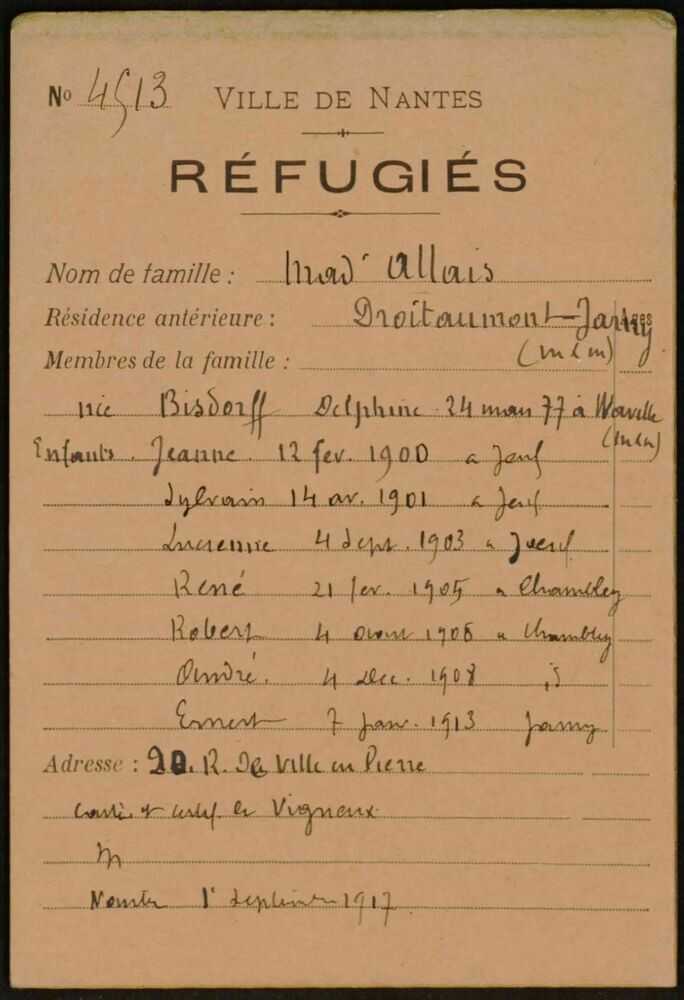 No 4513 VILLE DE NANTES
RÉFUGIÉS
Nom de famille : Mad' Allais
Résidence antérieure : Droitaumont-Jarny
Membres de la famille : (M & M)
née Bisdorff Delphine 24 mars 77 à
(M & M)
Enfants. Jeanne. 12 fev. 1900 a Jœuf
Sylvain 14 av. 1901 a Jœuf
Lucienne 4 Sept. 1903 " Jœuf
René 21 fev. 1905 " Chambley
Robert 4 1906 " Chambley
André. 4 Dec. 1908 id
Ernest 7 Janv. 1913 Jarny
Adresse : 20. R. De Ville en Pierre
et certif. de Vigneux
M
Nantes 1r Septembre 1917